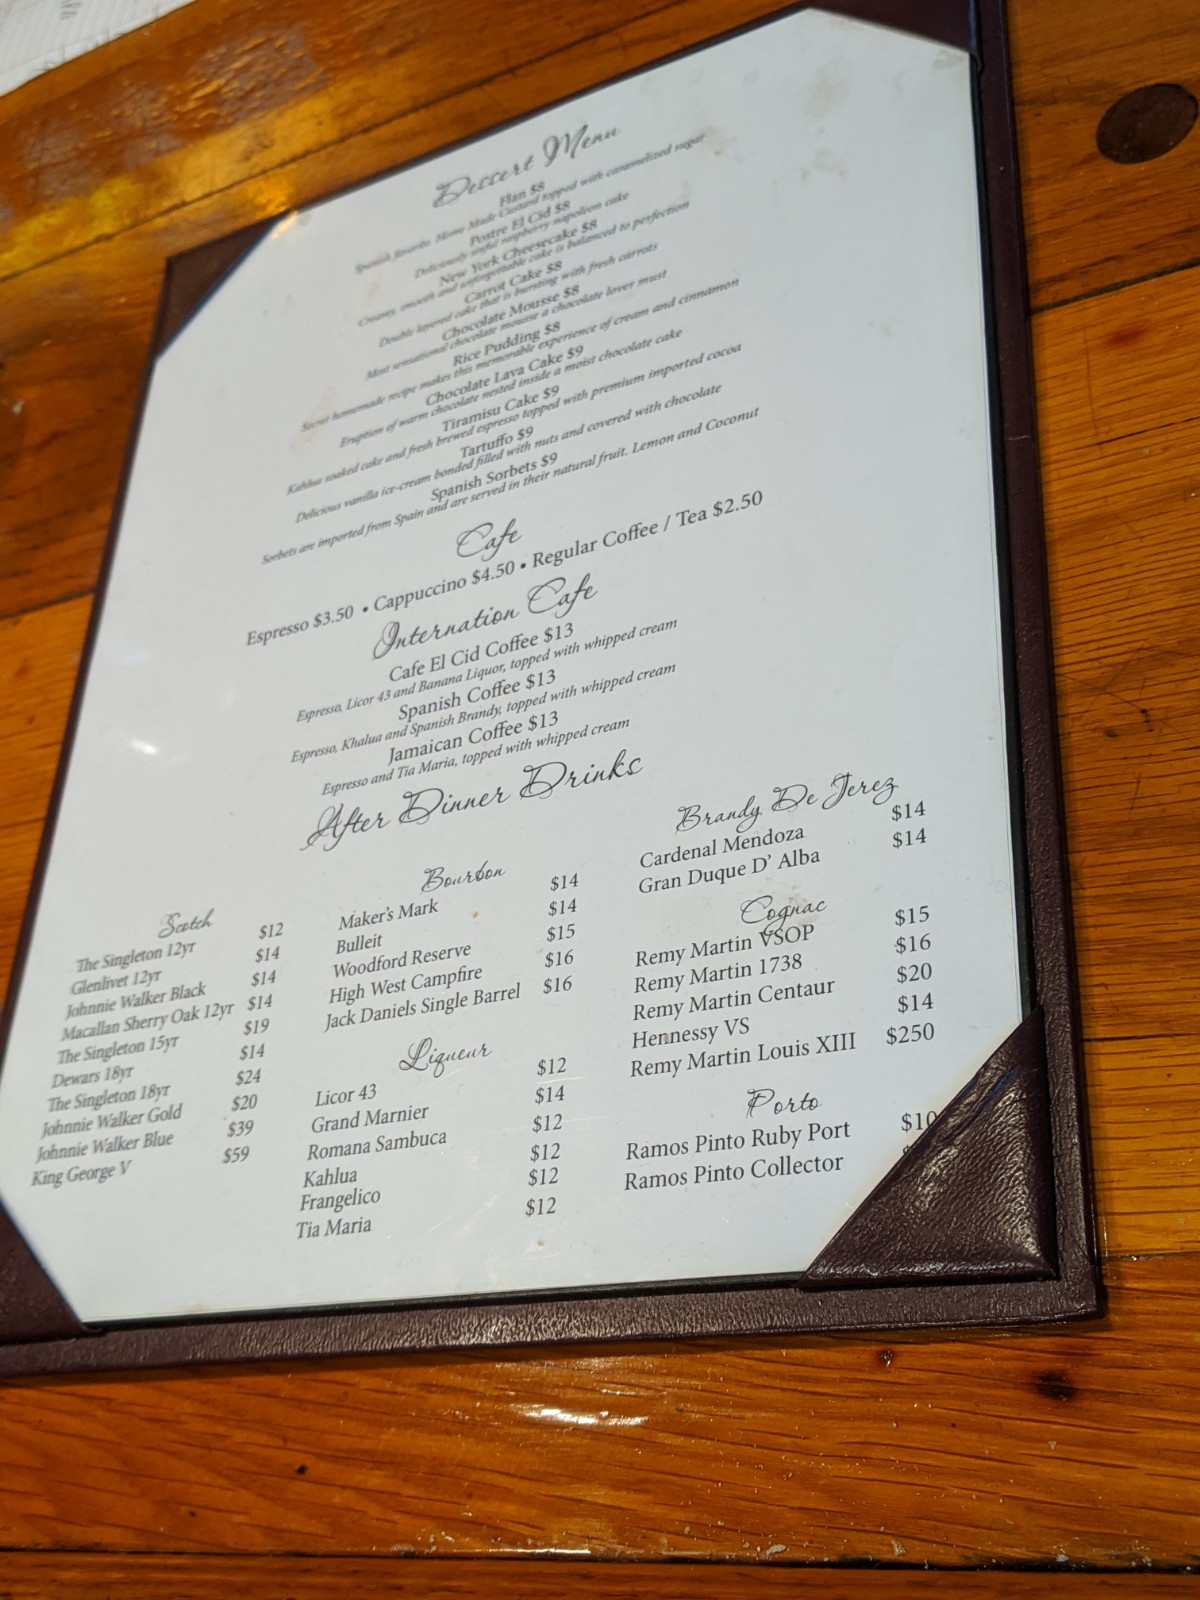 Dessert Menu
Flan $8
Spanish favorite. Home Made Custard topped with caramelized sugar
Postre El Cid $8
Deliciously sinful raspberry napoleon cake
New York Cheesecake $8
Creamy, smooth and unforgettable cake is balanced to perfection
Carrot Cake $8
Double layered cake that is bursting with fresh carrots
Chocolate Mousse $8
Most sensational chocolate mousse a chocolate lover must
Rice Pudding $8
Secret homemade recipe makes this memorable experience of cream and cinnamon
Chocolate Lava Cake $9
Eruption of warm chocolate nested inside a moist chocolate cake
Tiramisu Cake $9
Kahlua soaked cake and fresh brewed espresso topped with premium imported cocoa
Tartuffo $9
Delicious vanilla ice-cream bonded filled with nuts and covered with chocolate
Spanish Sorbets $9
Sorbets are imported from Spain and are served in their natural fruit. Lemon and Coconut
Cafe
Espresso $3.50 • Cappuccino $4.50 • Regular Coffee / Tea $2.50
Internation Cafe
Cafe El Cid Coffee $13
Espresso, Licor 43 and Banana Liquor, topped with whipped cream
Spanish Coffee $13
Espresso, Khalua and Spanish Brandy, topped with whipped cream
Jamaican Coffee $13
Espresso and Tia Maria, topped with whipped cream
After Dinner Drinks
Scotch
The Singleton 12yr $12
Glenlivet 12yr $14
Johnnie Walker Black $14
Macallan Sherry Oak 12yr $14
The Singleton 15yr $19
Dewars 18yr $14
The Singleton 18yr $24
Johnnie Walker Gold $20
Johnnie Walker Blue $39
King George V $59
Bourbon
Maker's Mark $14
Bulleit $14
Woodford Reserve $15
High West Campfire $16
Jack Daniels Single Barrel $16
Liqueur
Licor 43 $12
Grand Marnier $14
Romana Sambuca $12
Kahlua $12
Frangelico $12
Tia Maria $12
Brandy De Jerez
Cardenal Mendoza $14
Gran Duque D' Alba $14
Cognac
Remy Martin VSOP $15
Remy Martin 1738 $16
Remy Martin Centaur $20
Hennessy VS $14
Remy Martin Louis XIII $250
Porto
Ramos Pinto Ruby Port $10
Ramos Pinto Collector